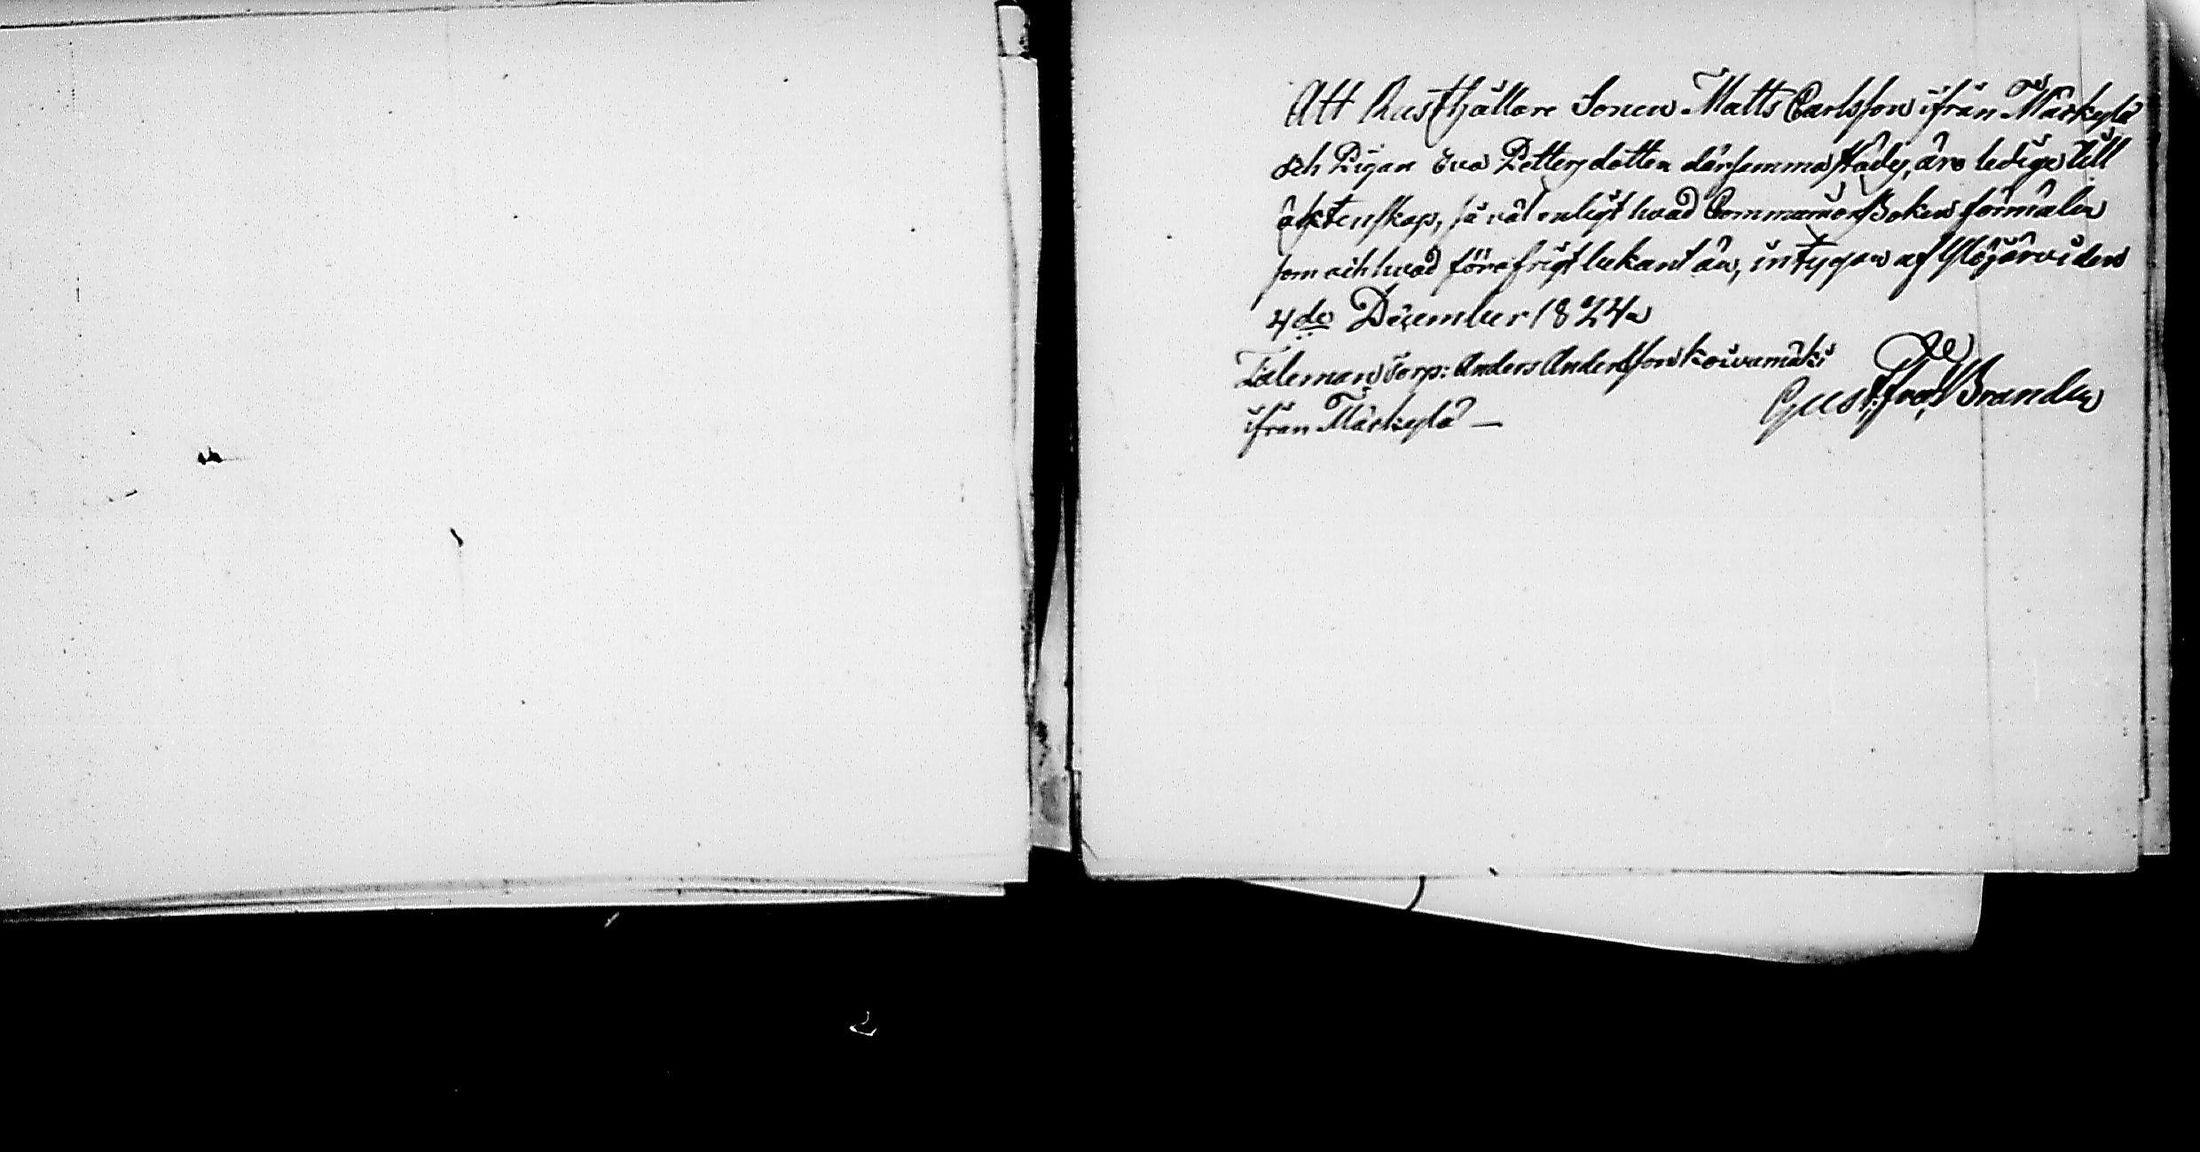 Att Rusthållare Sonen Matts Carlsson ifrån Mäckylä
och Pigan Eva Pettersdotter därsammastädes, äro ledige till
äktenskap, så väl enligt hvad Communion Boken förmäler
som ock hvad för öfrigt bekant är, intygar af Ylöjärvi den
4de December 1824
Taleman Torp: Anders Andersson Koivumäki
ifrån Mäckylä —
Gust: Brander